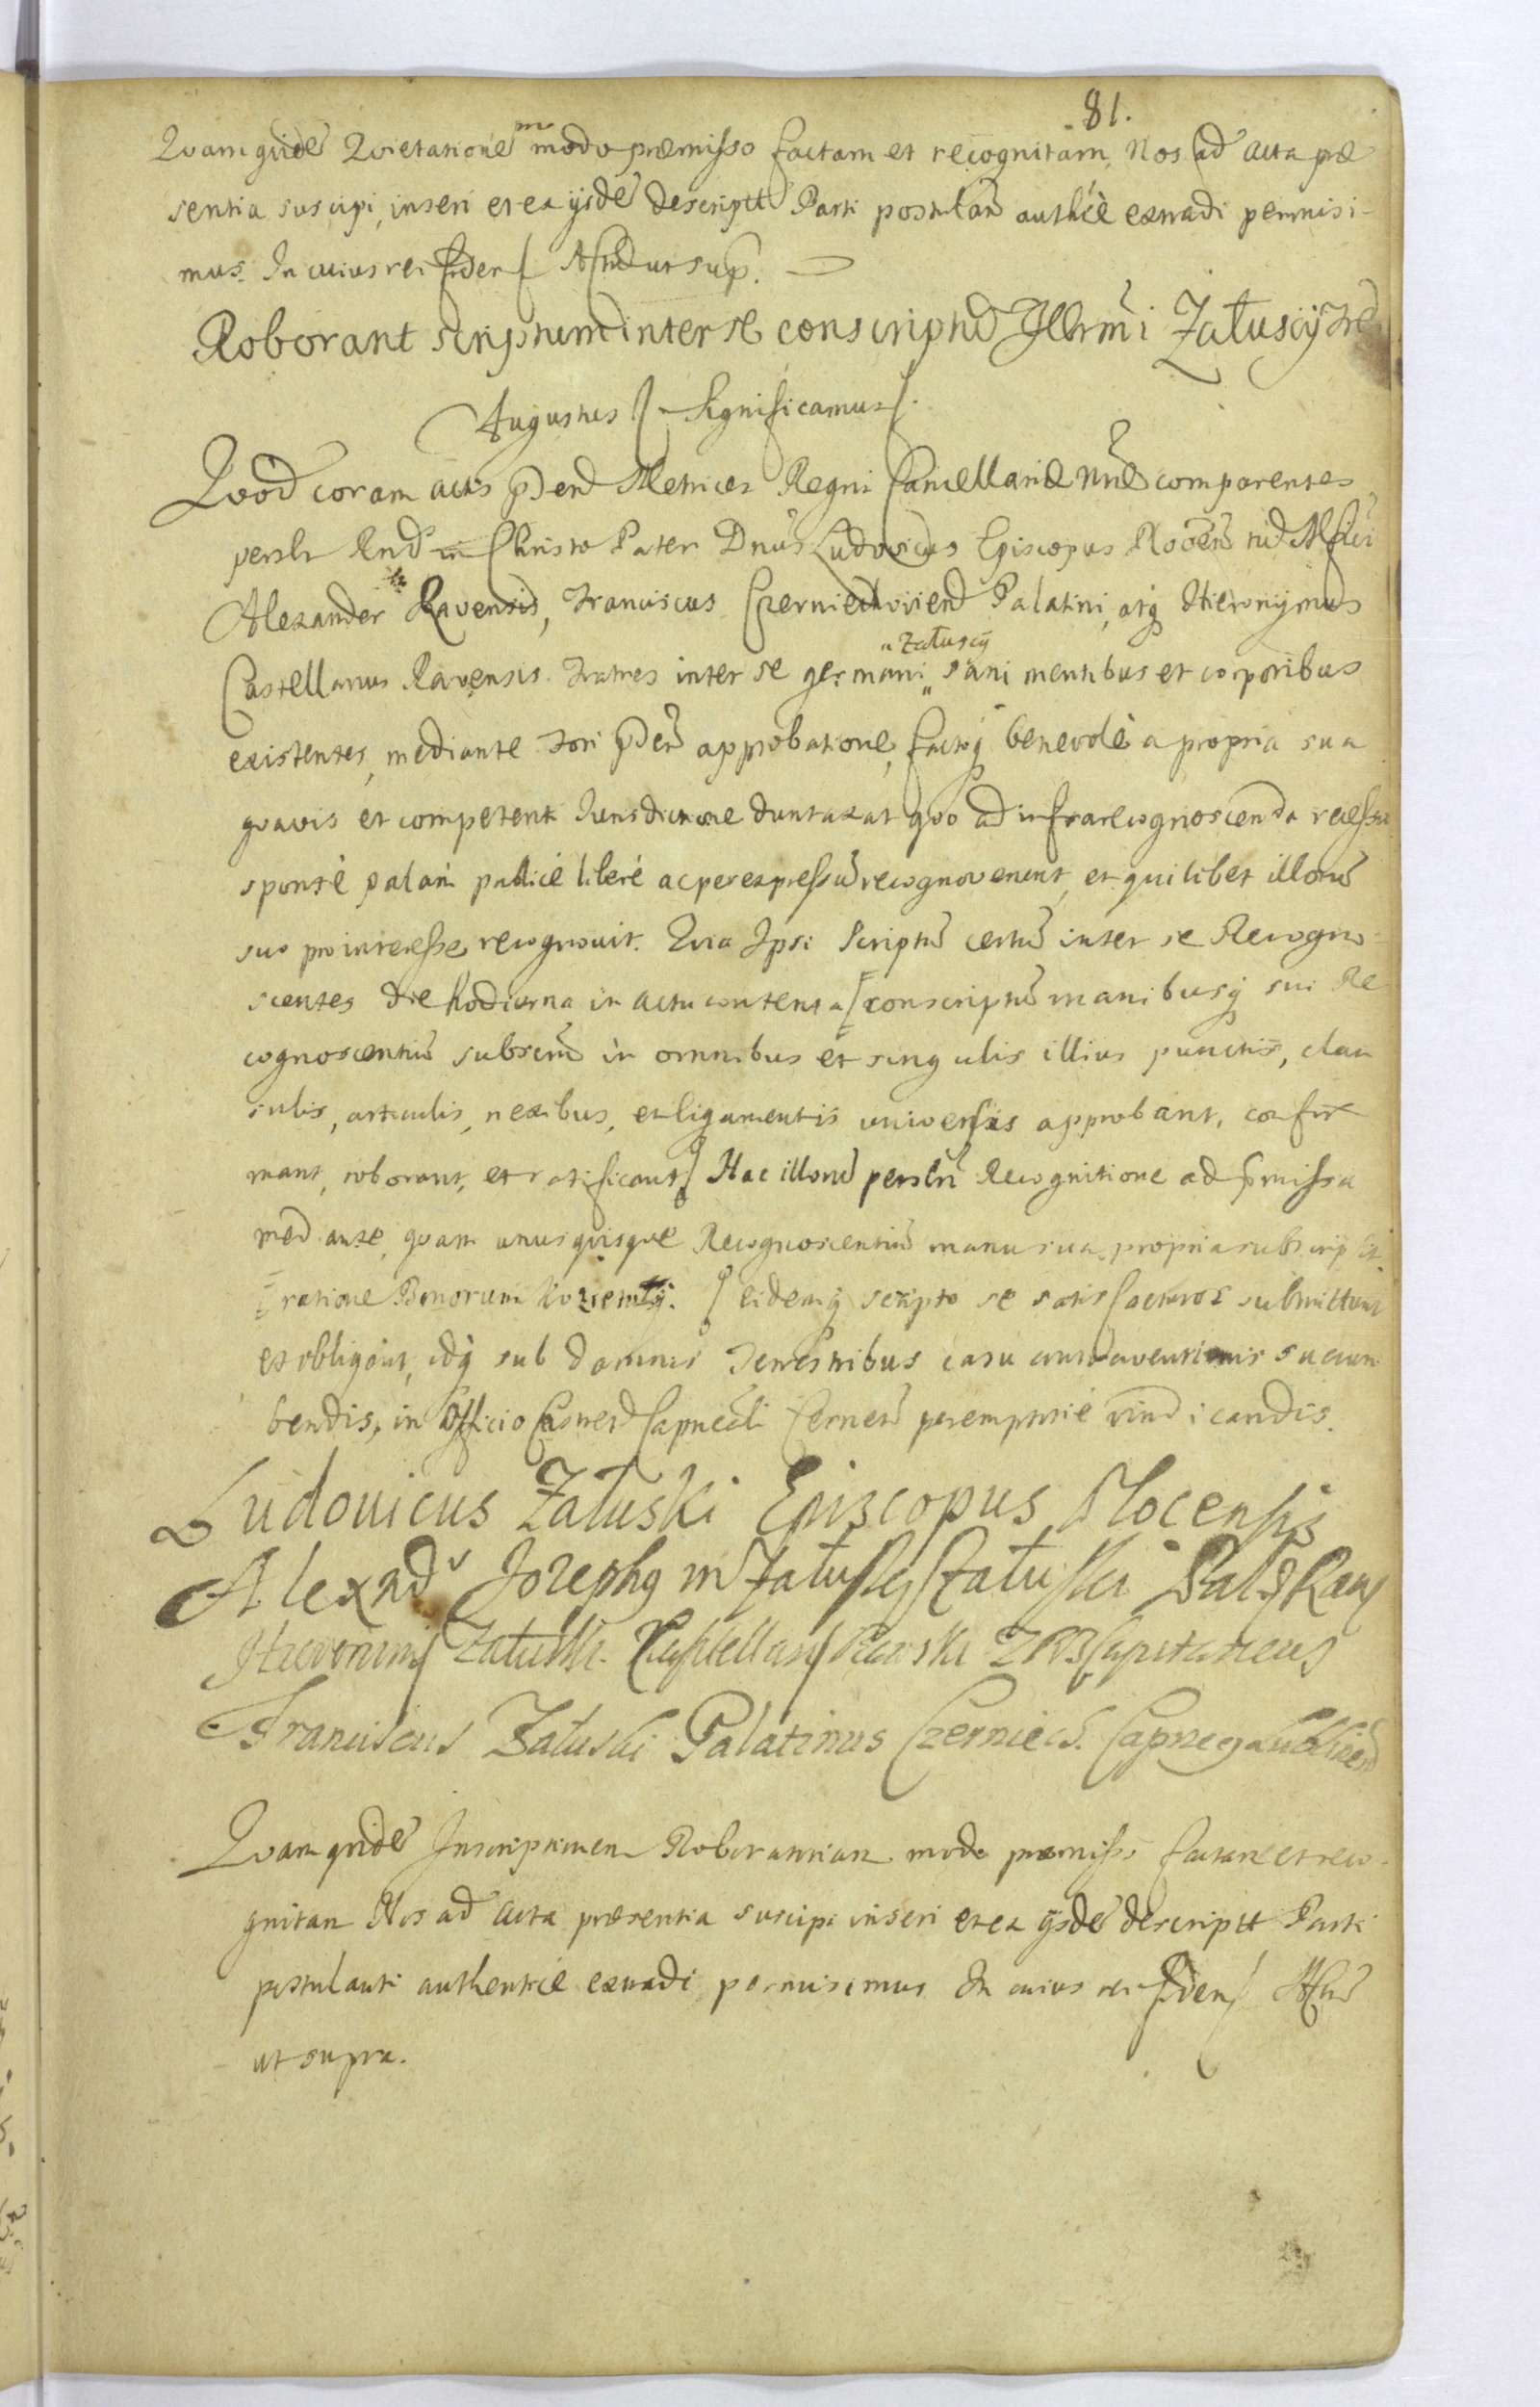 81.
Quam quidẽ Quietationẽ modo præmisso factam et recognitam, Nos ad acta præ
sentia suscipi, inseri et ex ijsdẽ descriptt Parti postulañ authẽe extradi permisi-
mus. In cuius rei fidem ut sup.
Roborant scriptum inter se conscriptũ Illrmi Załuscÿ
Augustus Significamus
Quod coram actis Metrices Regni Cancellariæ comparentes
perslr Rnd in Christo Pater Dnus Ludovicus Episcopus
Alexander Ravensis, Franciscus Czerniechovien Palatini, atq Hieronymus
Castellanus Ravensis. Fratres inter se germani „Załuscÿ„ sani mentibus et corporibus
existentes, mediante fori approbatione, factoq benevolè a propria sua
quavis et competenti Iurisdictione duntaxat quo ad infrarecognoscenda recessu
spontè palam publicè liberè ac per expressũ recognoverunt, et quilibet illorũ
suo pro interesse recognovit. Quia Ipsi Scriptũ certũ inter se Recogno-
scentes die hodierna in actu contenta conscriptũ manibusq sui Re
cognoscentiũ in omnibus et singulis illius punctis, clau
sulis, articulis, nexibus, et ligamentis universis approbant, confir
mant, roborant, et ratificant Hac illorũ perslri Recognitione ad præmissa
mediante, quam unusquisque Recognoscentiũ manu sua propria subscripsit.
ratione Bonorum eidemq scripto se satisfacturos submittunt
et obligant, idq sub damnis terrestribus casu contraventionis succum
bendis, in Officio Capneali peremptoriè vindicandis.
Ludouicus Załuski Episcopus Plocensis
Alexndr Jozephq in Załuskj Załuski
Hieronim Załuski Capitaneus
Franciscus Załuski Palatinus Czerniech.
Quam quidẽ Inscriptionem Roboratoriam modo præmisso factam et reco-
gnitam Nos ad acta præsentia suscipi inseri et ex ijsdẽ descriptt Parti
postulanti authenticè extradi permisimus. In cuius rei fidem
ut supra.